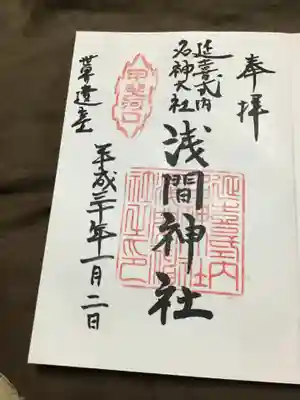 奉拝
延喜式内
名神大社
浅間神社
甲斐河口
世界遺産
平成三十年一月二日